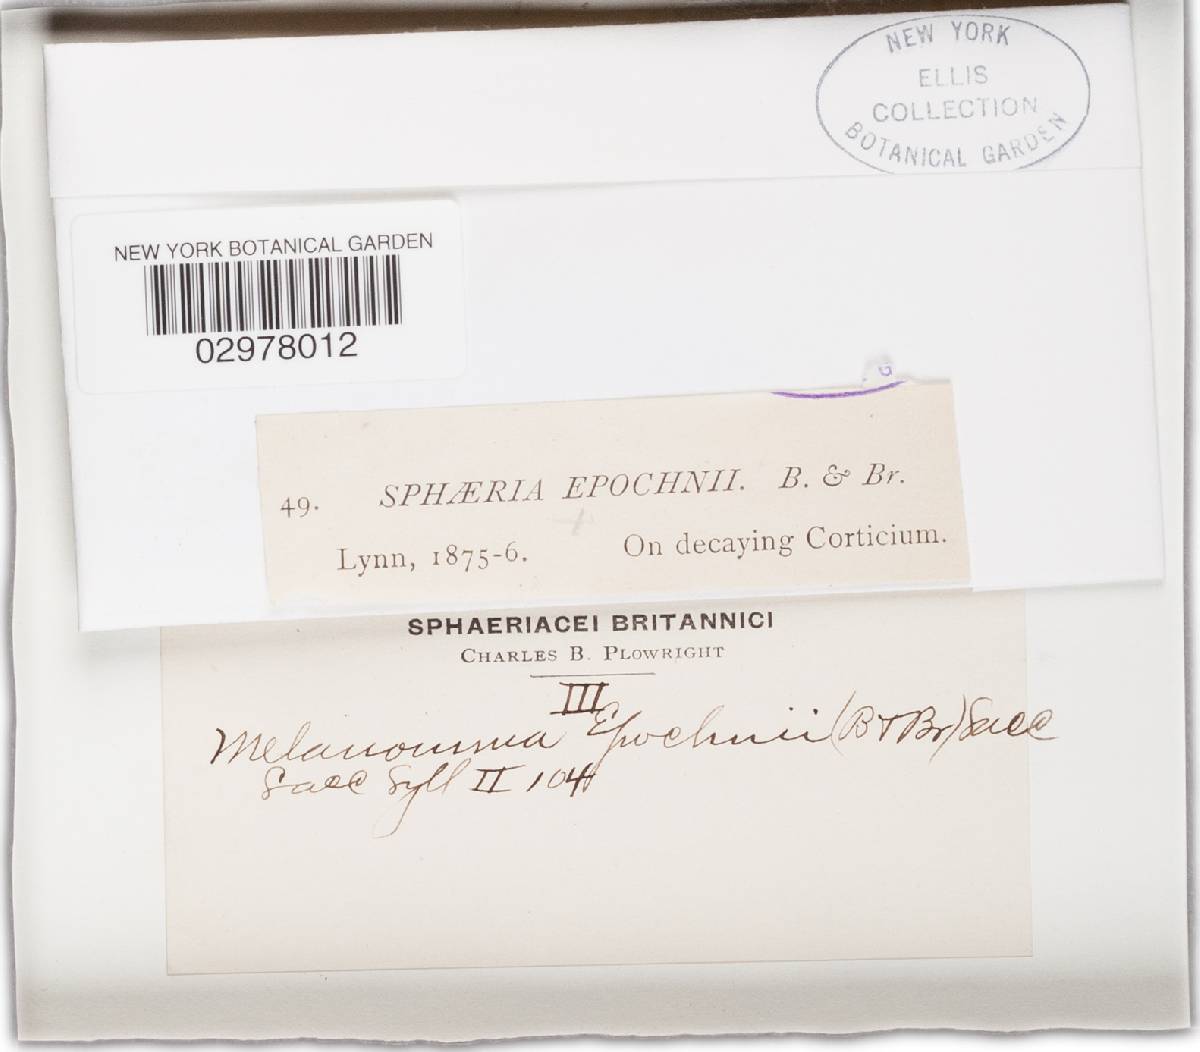 NEW YORK
ELLIS
COLLECTION
BOTANICAL GARDEN
NEW YORK BOTANICAL GARDEN
02978012
49. SPHÆRIA EPOCHNII. B. & Br.
Lynn, 1875-6. On decaying Corticium.
SPHAERIACEI BRITANNICI
CHARLES B. PLOWRIGHT
III
Melanomma Epochnii (B + Br) Sacc
Sacc Syll II 104